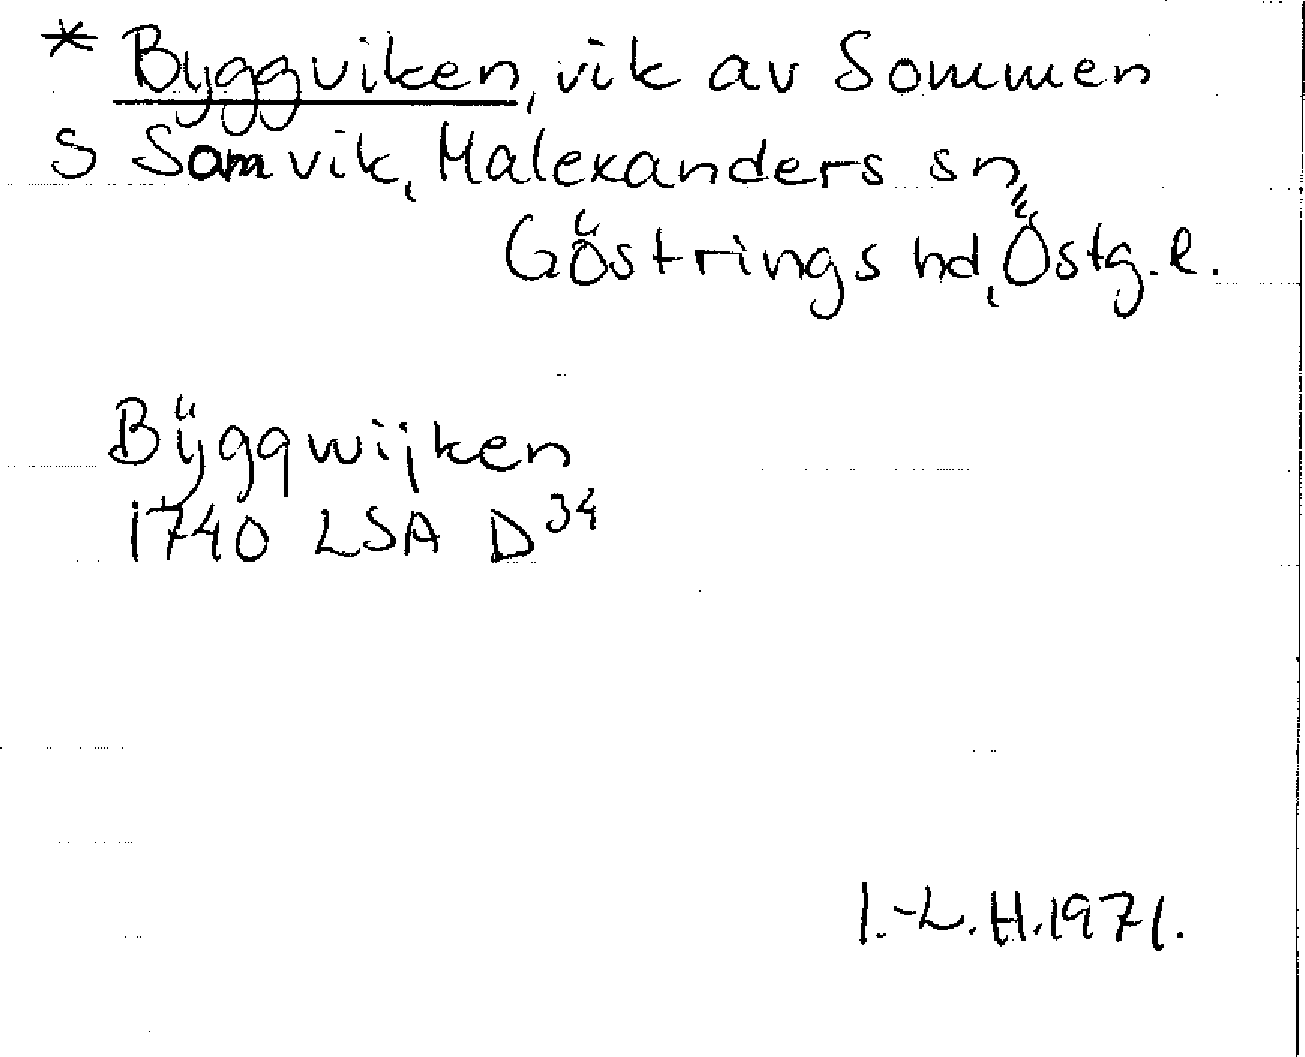 * Byggviken, vik av Sommen
S Samvik, Malexanders sn,
Göstrings hd, Östg. l.
Bÿggwijken
1740 LSA D 34
I.-L. H. 1971.